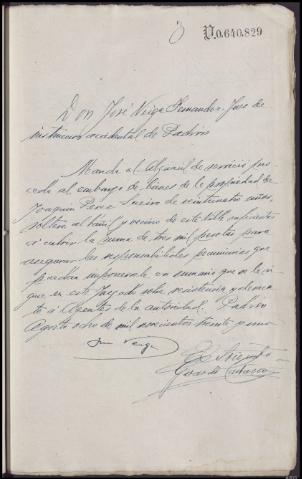 V.0.640.829
Don José Veiga Fernandez Juez de
instrucción accidental de Padrón
Manda al alguacil de servicio pro-
ceda al embargo de bienes de la propiedad de
Joaquín Pena Sueiro de veintisiete años,
soltero albañil y vecino de esta villa suficientes
a cubrir la suma de tres mil pesetas para
asegurar las responsabilidades pecuniarias que
puedan imponerle en sumario que se le si-
gue en este Juzgado sobre resistencia y desaca-
to a Agentes de la autoridad. Padrón
Agosto ocho de mil novecientos treinta y uno
José Veiga